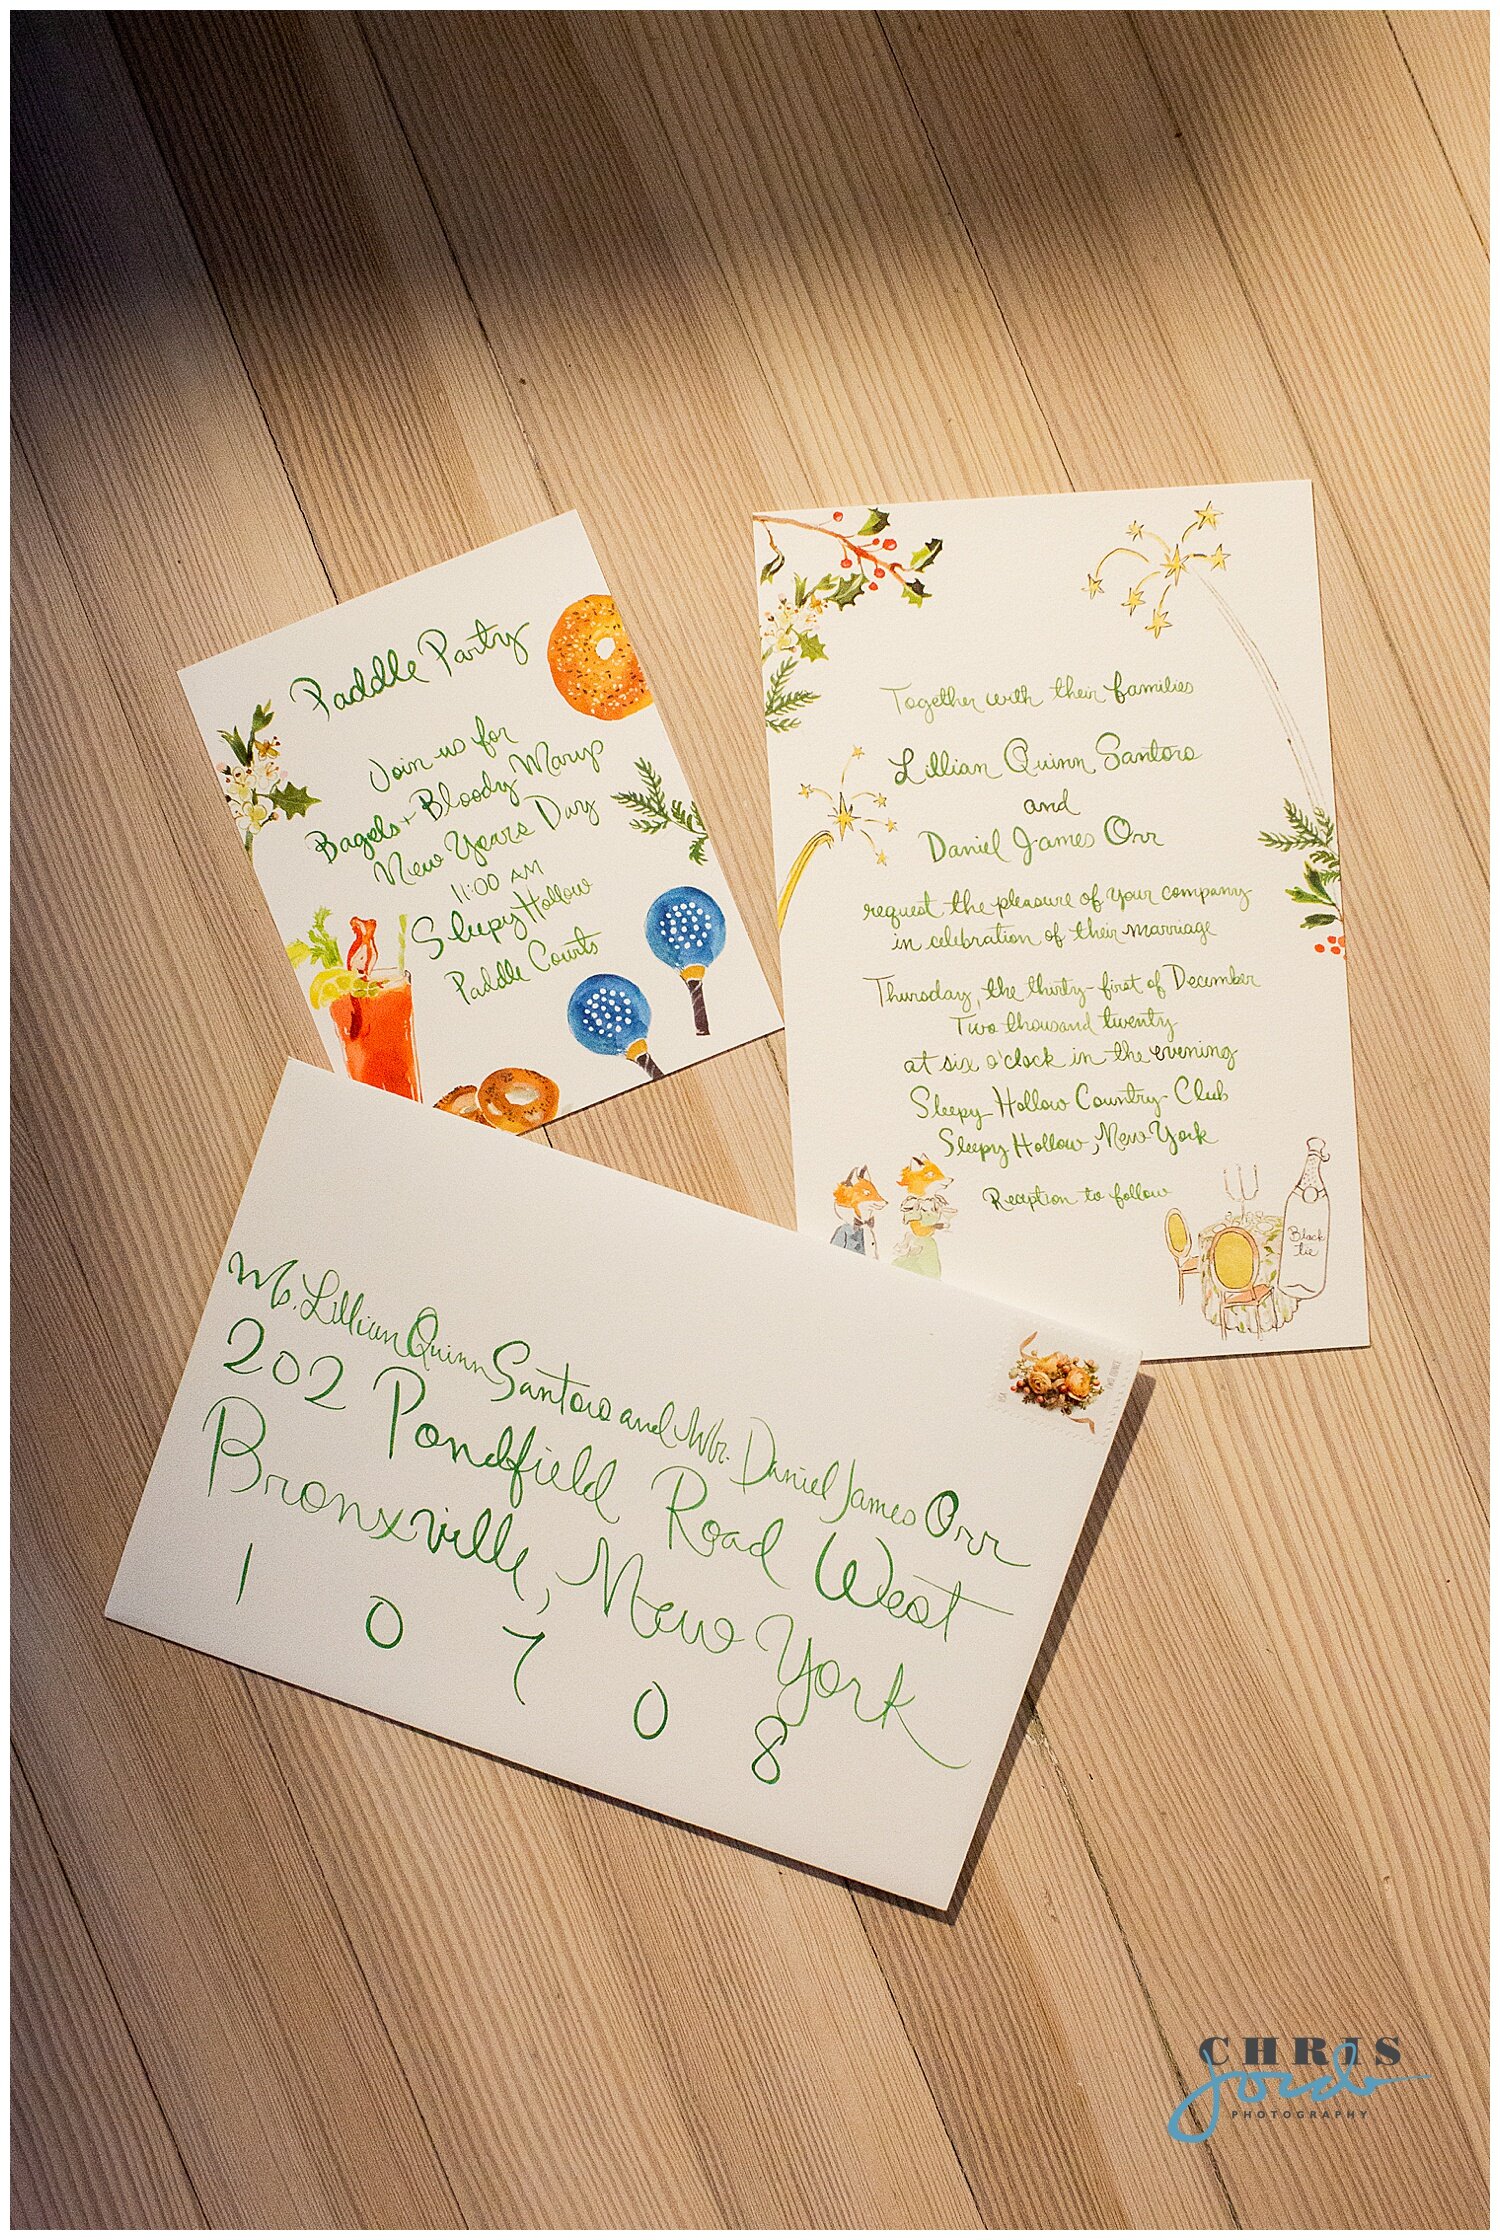 Paddle Party
Join us for
Bagels + Bloody Marys
New Years Day
11:00 AM
Sleepy Hollow
Paddle Courts
Together with their families
Lillian Quinn Santoro
and
Daniel James Orr
request the pleasure of your company
in celebration of their marriage
Thursday, the thirty-first of December
Two thousand twenty
at six o'clock in the evening
Sleepy Hollow Country Club
Sleepy Hollow, New York
Reception to follow
Black
tie
Ms. Lillian Quinn Santoro and Mr. Daniel James Orr
202 Pondfield Road West
Bronxville, New York
1 0 7 0 8
USA
TWO OUNCE
CHRIS
Jorda
PHOTOGRAPHY